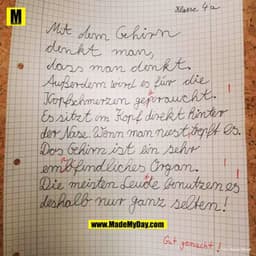 M
Klasse 4a
Mit dem Gehirn
denkt man,
dass man denkt.
Außerdem wird es für die
Kopfschmerzen gebraucht.
Es sitzt im Kopf direkt hinter
der Nase. Wenn man niest, tropft es.
Das Gehirn ist ein sehr
empfindliches Organ.
Die meisten Leute benutzen es
deshalb nur ganz selten!
www.MadeMyDay.com
Gut gemacht!